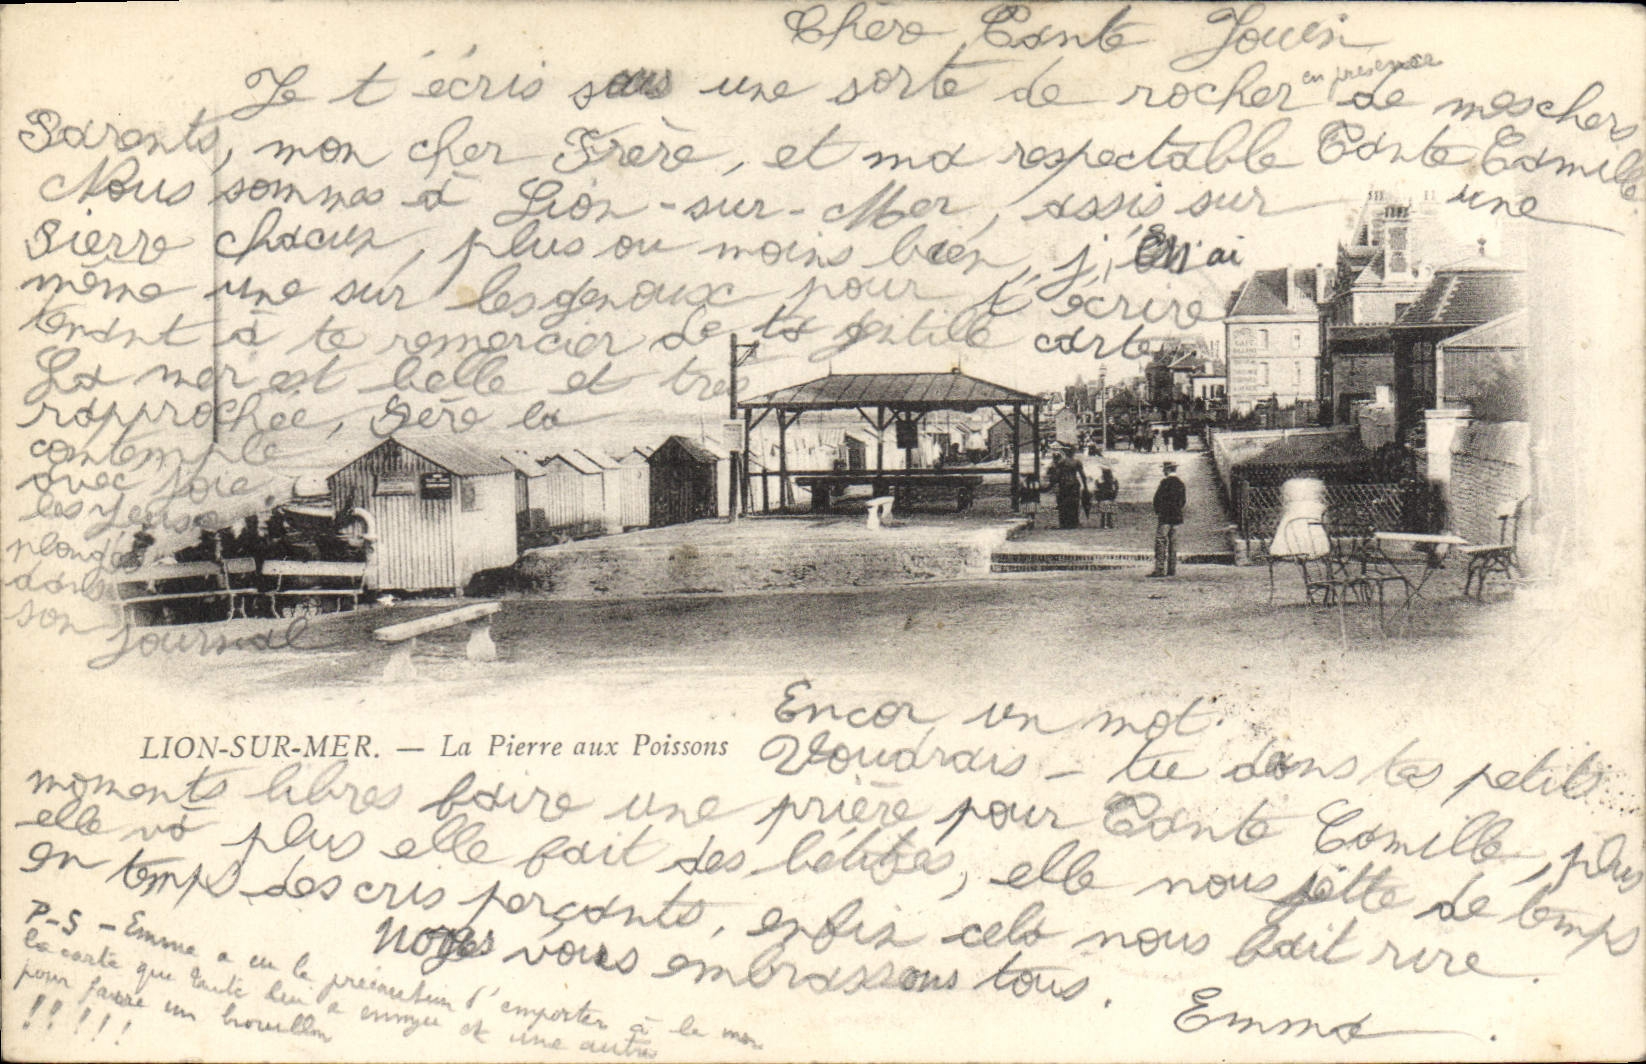 Chère Tante Jouin
Je t'écris sur une sorte de rocher en présence de mes chers
Parents, mon cher Frère, et ma respectable Tante Camille.
Nous sommes à Lion-sur-Mer, assis sur une
pierre chacun, plus ou moins bien, j'en n'ai
même une sur les genoux pour t'écrire
tenant à te remercier de ta gentille carte
La mer est belle et très
rapprochée, Père la
contemple
avec joie.
les yeux
plongés
dans
son
journal
LION-SUR-MER. — La Pierre aux Poissons
Encor un mot.
Voudrais-tu dans tes petits
moments libres faire une prière pour Tante Camille, plus
elle va plus elle fait des bêtises, elle nous jette de temps
en temps des cris perçants, enfin cela nous fait rire.
Nous vous embrassons tous.
Emma.
P-S - Emma a eu la précaution d'emporter à la mer
la carte que Tante lui a envoyée et une autre
pour faire un brouillon
!!!!!